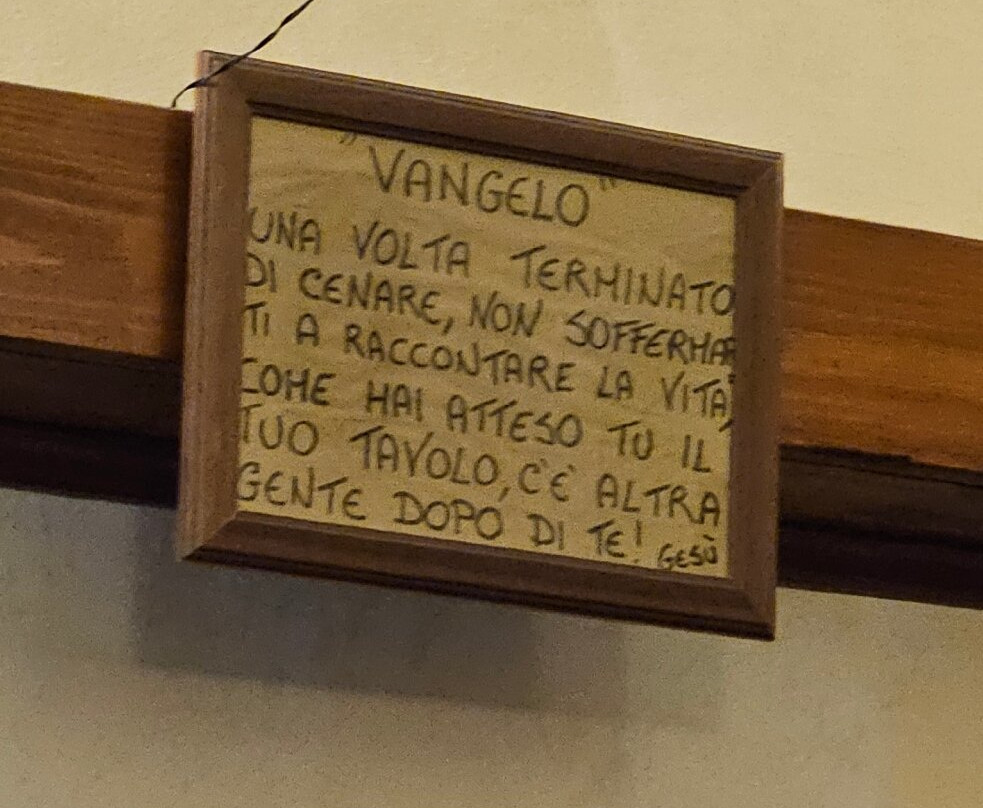 "VANGELO"
UNA VOLTA TERMINATO
DI CENARE, NON SOFFERMAR
TI A RACCONTARE LA VITA,
COME HAI ATTESO TU IL
TUO TAVOLO, C'È ALTRA
GENTE DOPO DI TE! GESÙ